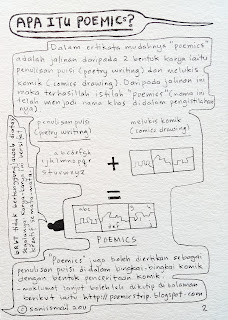 APA ITU POEMICS?
Dalam ertikata mudahnya "poemics"
adalah jalinan daripada 2 bentuk karya iaitu
penulisan puisi (poetry writing) dan melukis
komik (comics drawing). Daripada jalinan ini
maka terhasillah istilah "poemics" (nama ini
telah menjadi nama khas didalam pengistilahan
nya).
penulisan puisi
(poetry writing)
melukis komik
(comics drawing)
abcdefgh
ijklmnopqr
stuvwxyz
+
=
abc
def
POEMICS
"Poemics" juga boleh diertikan sebagai
penulisan puisi di dalam bingkai-bingkai komik
dengan bentuk penceritaan komik.
- maklumat lanjut bolehlah dikutip di halaman
berikut iaitu http://poemicstrip.blogspot.com
© sonismail 2011
2